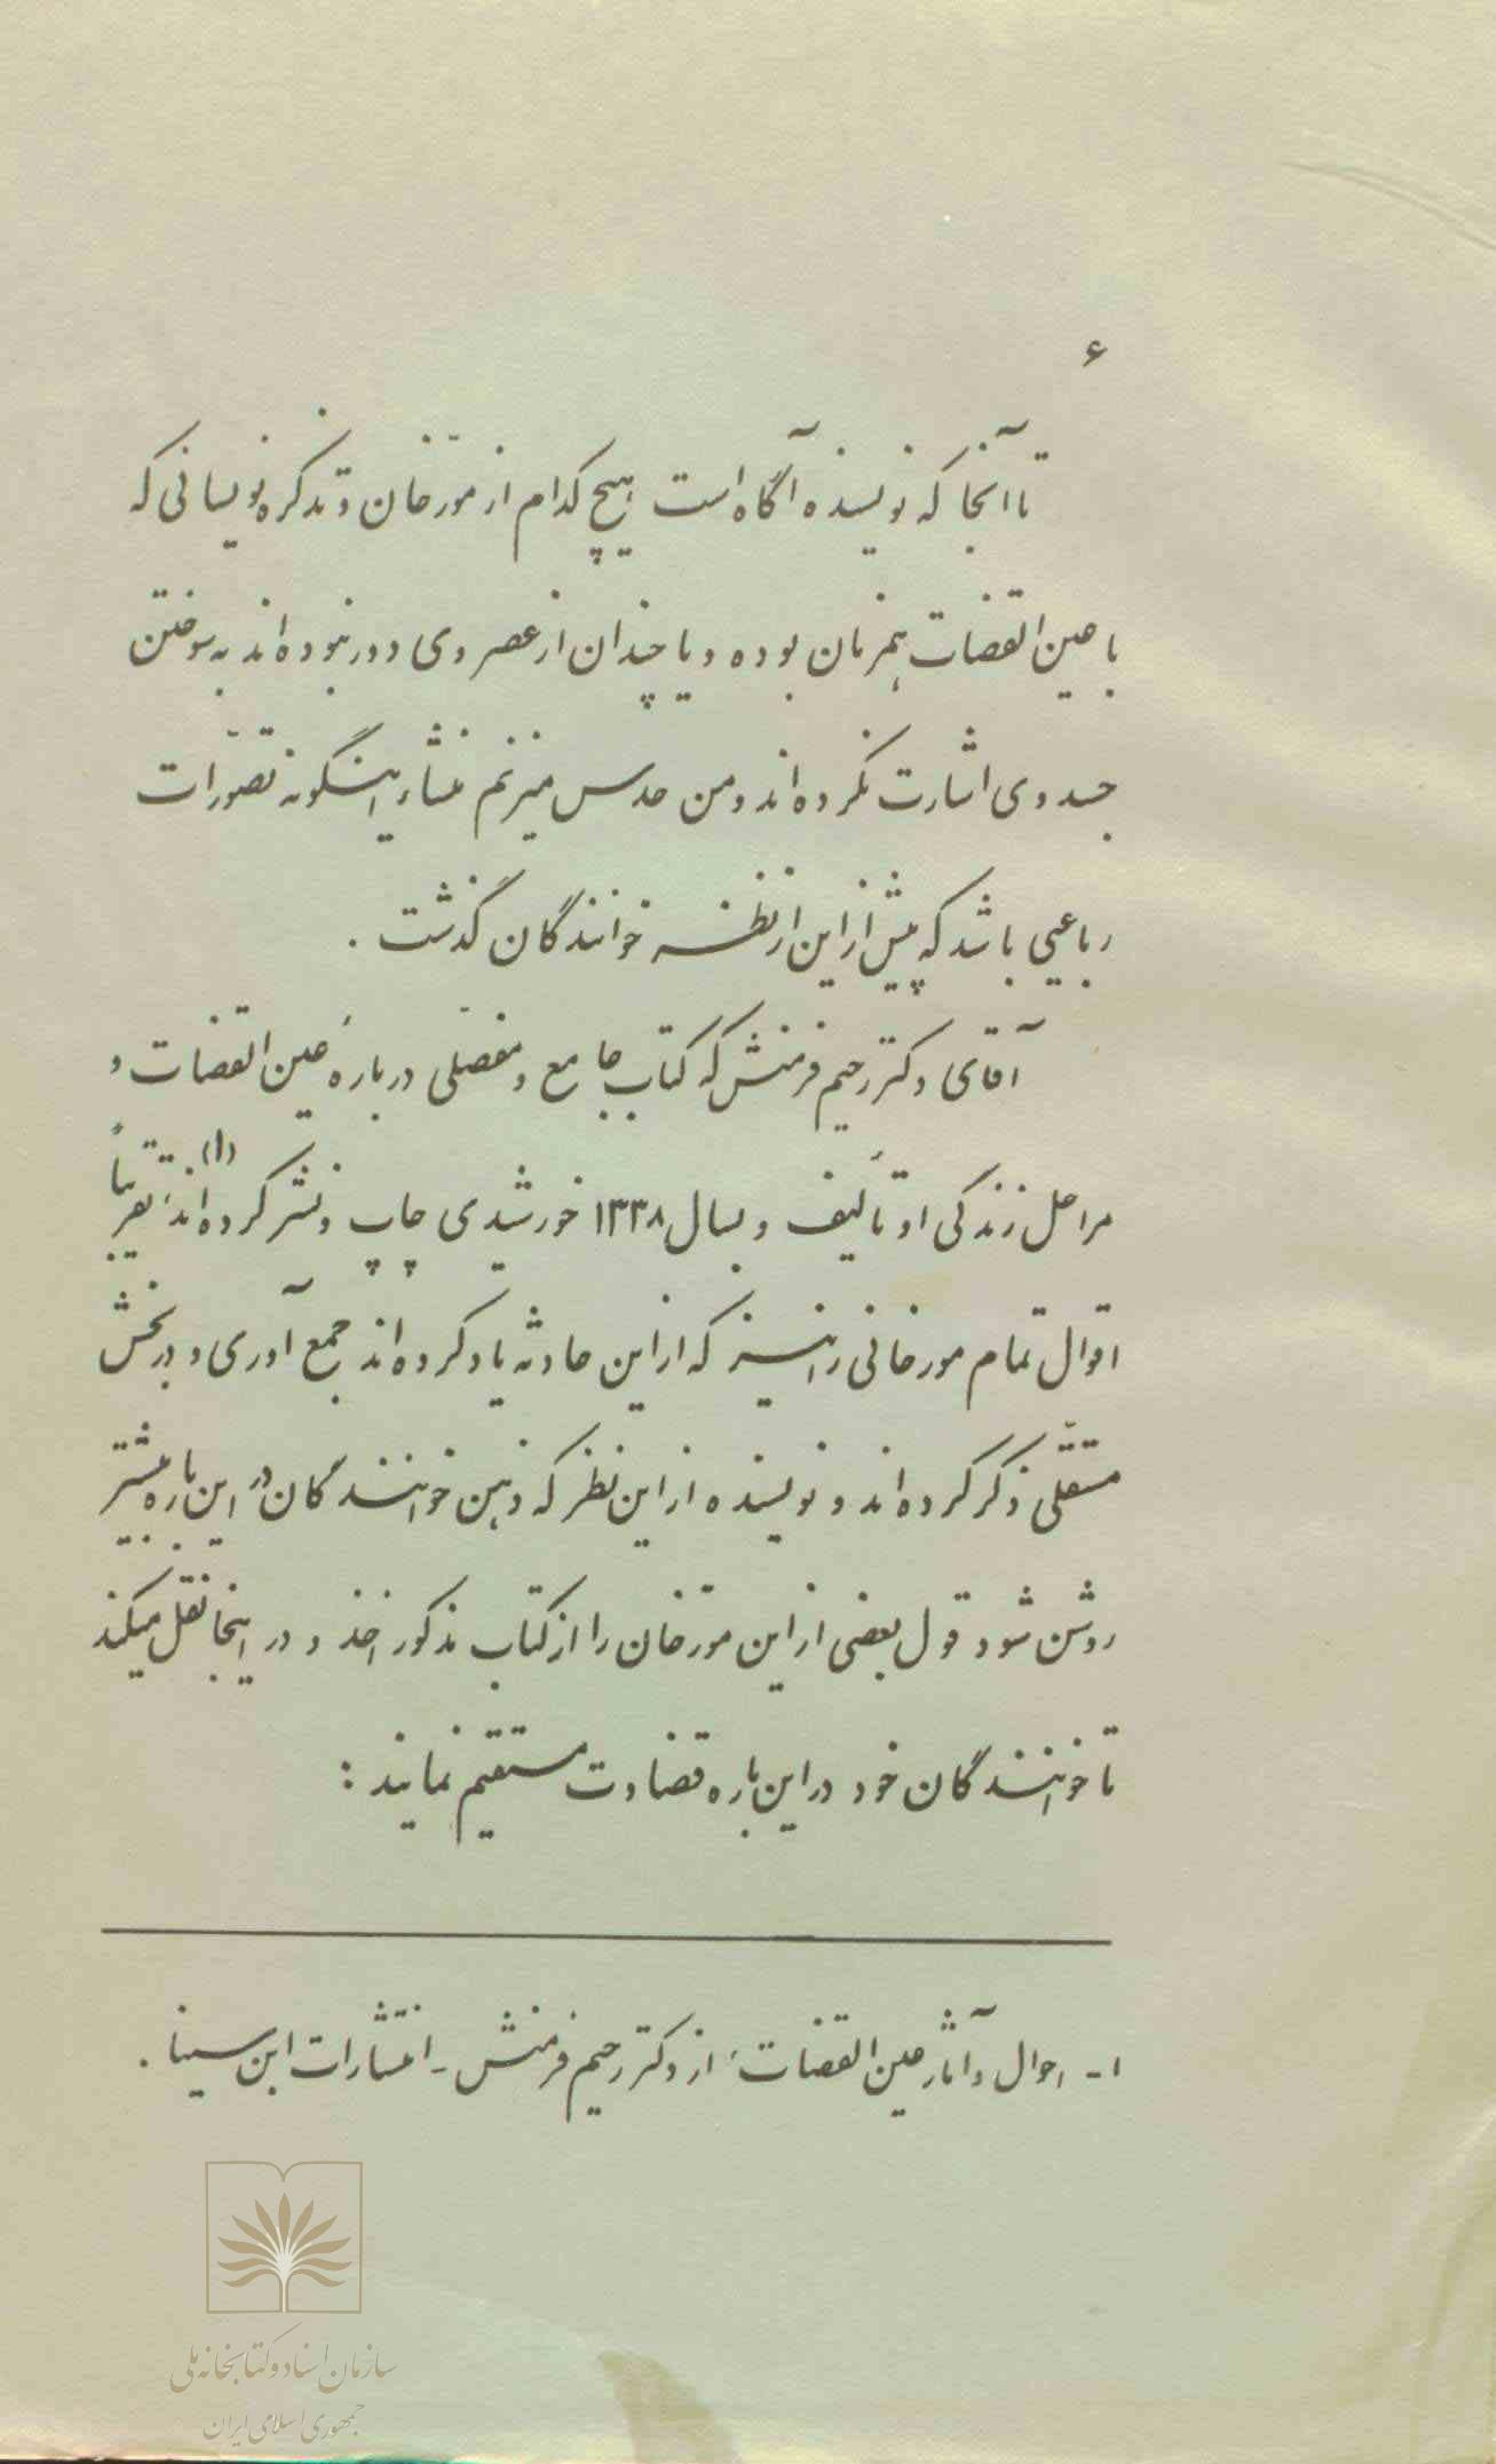 ۶
تا آنجا که نویسنده آگاه است هیچ کدام از مورّخان و تذکره نویسانی که
با عین القضات همزمان بوده و یا چندان از عصر وی دور نبوده اند به سوختن
جسد وی اشارت نکرده اند و من حدس میزنم منشاء اینگونه تصوّرات
رباعیی باشد که پیش از این از نظر خوانندگان گذشت .
آقای دکتر رحیم فرمنش که کتاب جامع و مفصّلی دربارهٔ عین القضات و
مراحل زندگی او تألیف و بسال ۱۳۳۸ خورشیدی چاپ و نشر کرده اند،(۱) تقریباً
اقوال تمام مورخانی را نیز که از این حادثه یاد کرده اند جمع آوری و در بخش
مستقلّی ذکر کرده اند و نویسنده از این نظر که ذهن خوانندگان در این باره بیشتر
روشن شود قول بعضی از این مورّخان را از کتاب مذکور اخذ و در اینجا نقل میکند
تا خوانندگان خود در این باره قضاوت مستقیم نمایند :
۱ - احوال و آثار عین القضات، از دکتر رحیم فرمنش - انتشارات ابن سینا .
سازمان اسناد و کتابخانه ملی
جمهوری اسلامی ایران